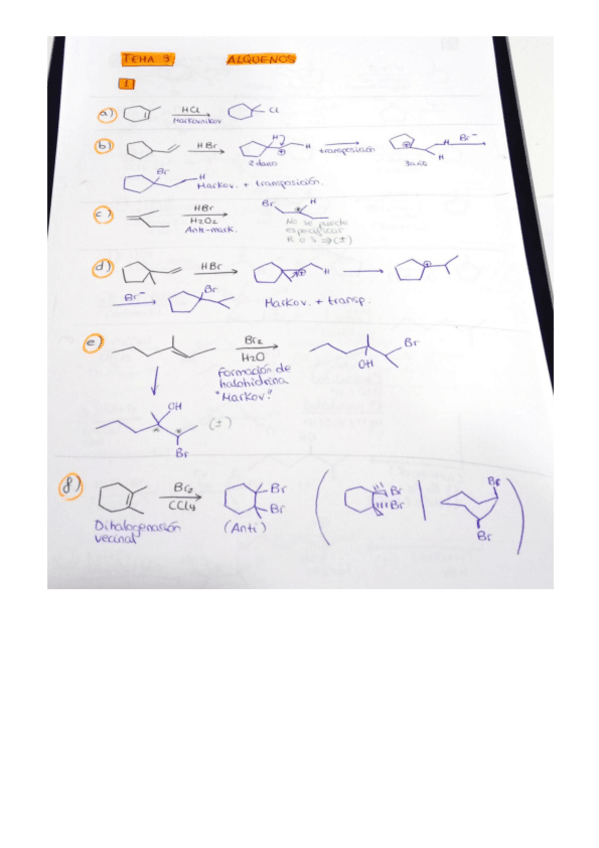 TEMA 9 ALQUENOS
1
a) HCl Cl
Markovnikov
b) HBr H H ⊕ transposición ⊕ H H Br⁻
2dario 3ario
Br H Markov. + transposición.
c) HBr Br H
H₂O₂ No se puede
Anti-mark. especificar
R o S ⇒ (±)
d) HBr ⊕ ⊕
Br⁻ Br Markov. + transp.
e) Br₂ Br
H₂O OH
Formación de
halohidrina
"Markov."
OH
* * (±)
Br
f) Br₂ Br Br Br
CCl₄ Br Br Br
Dihalogenación (Anti)
vecinal